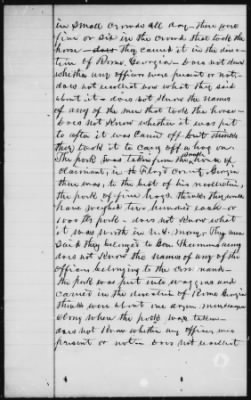 in small crowds all day - there were
five or six in the crowd that took the
horse - does they carried it in the direc-
tion of Rome Georgia - does not know
whether any officers were present or not -
does not recollect now what they said
about it - does not know the names
of any of the men that took the horse -
does not know whether it was put
to use after it was carried off but thinks
they took it to carry off a hog on -
The pork was taken from the house of
claimant, in Floyd County, Georgia
there was, to the best of his recollection,
the pork of five hogs thinks they would
have weighed two hundred each or
1000 lbs pork - does not know what
it was worth in U.S. money. They
said they belonged to Gen Shermans army
does not know the names of any of the
officers belonging to the command -
the pork was put into waggons and
carried in the direction of Rome Georgia
Thinks were about one dozen men
along when the pork was taken -
does not know whether any officer was
present or not - does not recollect